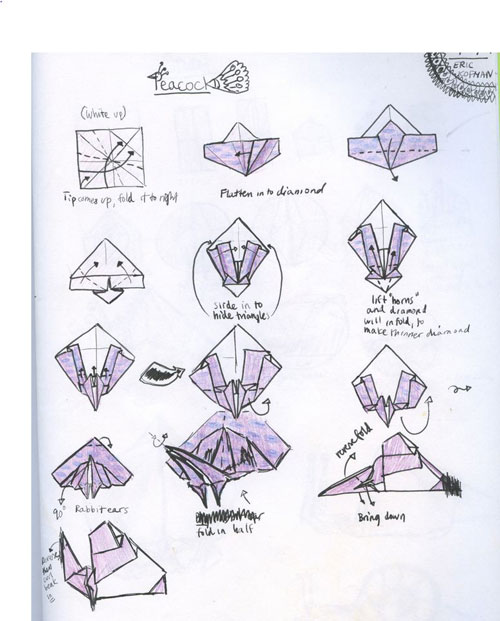 Peacock
ERIC
GOFMAN
(White up)
Tip comes up, fold it to right
Flatten in to diamond
slide in to
hide triangles
lift "horns"
and diamond
will in fold, to
make thinner diamond
90°
Rabbit ears
fold in half
reverse fold
Bring down
beak